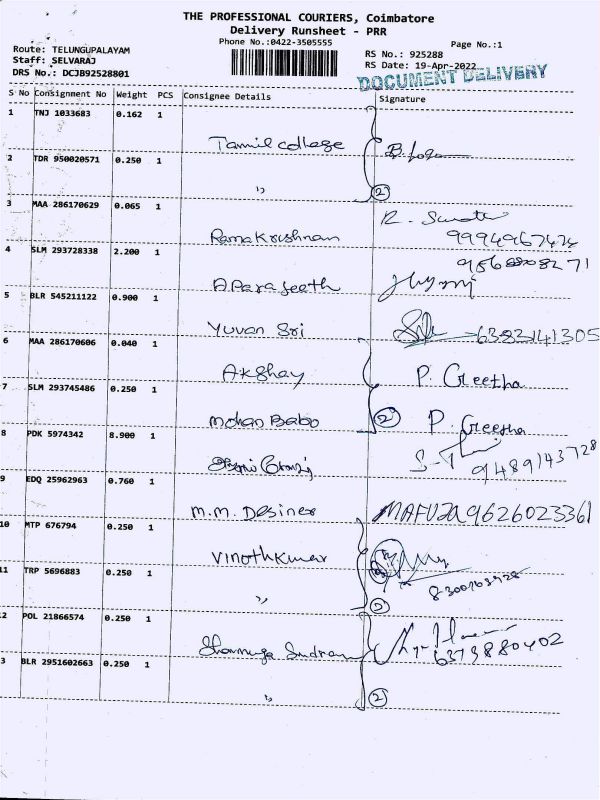 THE PROFESSIONAL COURIERS, Coimbatore
Delivery Runsheet - PRR
Phone No.:0422-3505555
Page No.:1
Route: TELUNGUPALAYAM
Staff: SELVARAJ
DRS No.: DCJB92528801
RS No.: 925288
RS Date: 19-Apr-2022
DOCUMENT DELIVERY
S No Consignment No Weight PCS Consignee Details Signature
1 TNJ 1033683 0.162 1
Tamil college
2 TDR 950020571 0.250 1
" 2
3 MAA 286170629 0.065 1
Ramakrishnan 9994967424
4 SLM 293728338 2.200 1
Aparajeeth
5 BLR 545211122 0.900 1
Yuvan Sri 6383141305
6 MAA 286170606 0.040 1
Akshay P. Greetha
7 SLM 293745486 0.250 1
Mohan Babo 2 P. Greetha
8 PDK 5974342 8.900 1
9489143728
9 EDQ 25962963 0.760 1
M.M. Desines MAFUZA 9626023361
10 MTP 676794 0.250 1
Vinothkumar
11 TRP 5696883 0.250 1
" 2
2 POL 21866574 0.250 1
Shanmuga Sundram 6373880402
3 BLR 2951602663 0.250 1
" 2